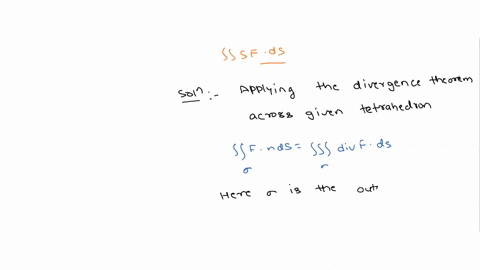 ∫∫ SF · ds
Solⁿ :- Applying the divergence theorem
across given tetrahedron
∫∫ F · n ds = ∫∫∫ div F · ds
σ σ
Here σ is the out